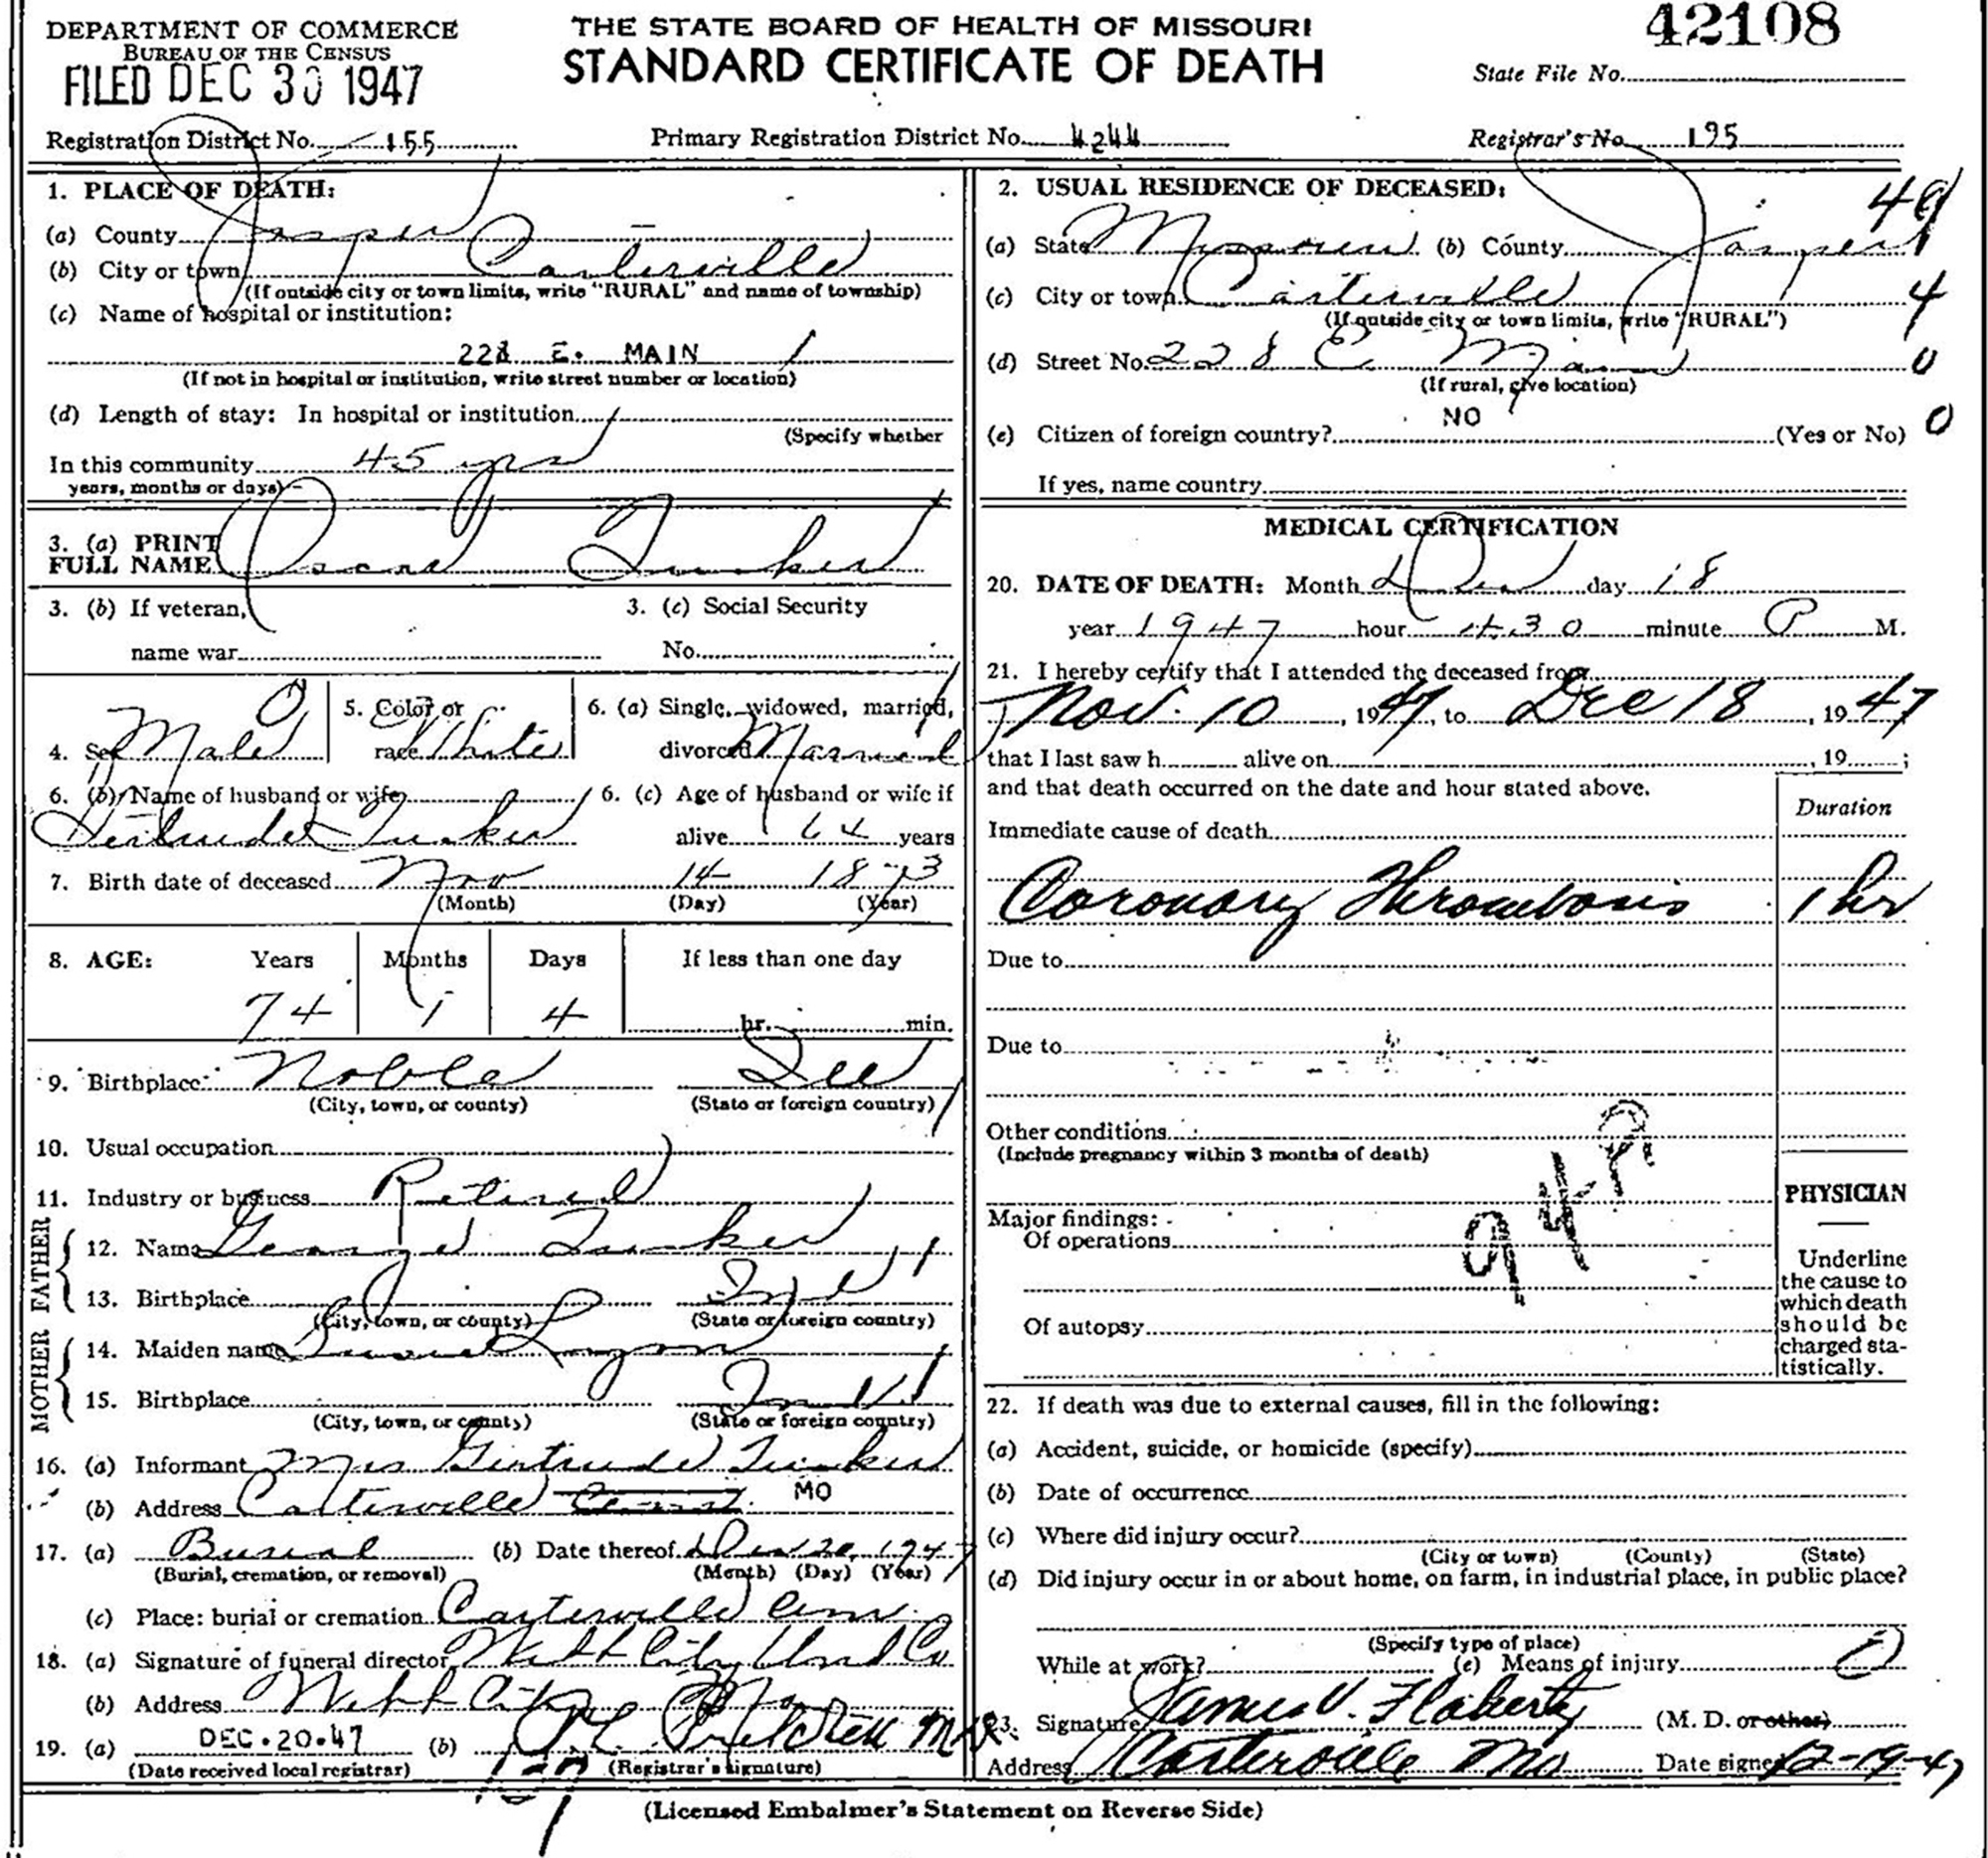 DEPARTMENT OF COMMERCE
BUREAU OF THE CENSUS
FILED DEC 30 1947
THE STATE BOARD OF HEALTH OF MISSOURI
STANDARD CERTIFICATE OF DEATH
42108
State File No.
Registration District No. 155
Primary Registration District No. 4244
Registrar's No. 195
1. PLACE OF DEATH:
(a) County Jasper
(b) City or town Carterville
(If outside city or town limits, write "RURAL" and name of township)
(c) Name of hospital or institution:
228 E. MAIN
(If not in hospital or institution, write street number or location)
(d) Length of stay: In hospital or institution
(Specify whether
In this community 45 yrs
years, months or days)
3. (a) PRINT
FULL NAME Oscar Tucker
3. (b) If veteran, 3. (c) Social Security
name war No.
4. Sex Male 5. Color or race White 6. (a) Single, widowed, married, divorced Married
6. (b) Name of husband or wife 6. (c) Age of husband or wife if
Gertrude Tucker alive 64 years
7. Birth date of deceased Nov 14 1873
(Month) (Day) (Year)
8. AGE: Years Months Days If less than one day
74 1 4 hr. min.
9. Birthplace Noble Ill
(City, town, or county) (State or foreign country)
10. Usual occupation
11. Industry or business Retired
FATHER
12. Name George Tucker
13. Birthplace Ind
(City, town, or county) (State or foreign country)
MOTHER
14. Maiden name
15. Birthplace
(City, town, or county) (State or foreign country)
16. (a) Informant Mrs Gertrude Tucker
(b) Address Carterville MO
17. (a) Burial (b) Date thereof Dec 20, 1947
(Burial, cremation, or removal) (Month) (Day) (Year)
(c) Place: burial or cremation Carterville Cem.
18. (a) Signature of funeral director Webb City Und Co
(b) Address Webb City Mo
19. (a) DEC. 20. 47 (b)
(Date received local registrar) (Registrar's signature)
2. USUAL RESIDENCE OF DECEASED:
49
(a) State Missouri (b) County Jasper
(c) City or town Carterville 4
(If outside city or town limits, write "RURAL")
(d) Street No. 228 E Main 0
(If rural, give location)
(e) Citizen of foreign country? NO (Yes or No) 0
If yes, name country
MEDICAL CERTIFICATION
20. DATE OF DEATH: Month Dec day 18
year 1947 hour 4:30 minute P M.
21. I hereby certify that I attended the deceased from
Nov. 10, 1947, to Dec 18, 1947
that I last saw h alive on , 19 ;
and that death occurred on the date and hour stated above.
Duration
Immediate cause of death
Coronary Thrombosis 1 hr
Due to
Due to
Other conditions
(Include pregnancy within 3 months of death)
Major findings:
Of operations
Of autopsy
PHYSICIAN
Underline
the cause to
which death
should be
charged sta-
tistically.
22. If death was due to external causes, fill in the following:
(a) Accident, suicide, or homicide (specify)
(b) Date of occurrence
(c) Where did injury occur?
(City or town) (County) (State)
(d) Did injury occur in or about home, on farm, in industrial place, in public place?
(Specify type of place)
While at work? (e) Means of injury
23. Signature James V. Flaherty (M. D. or other)
Address Carterville Mo Date signed 12-19-47
(Licensed Embalmer's Statement on Reverse Side)